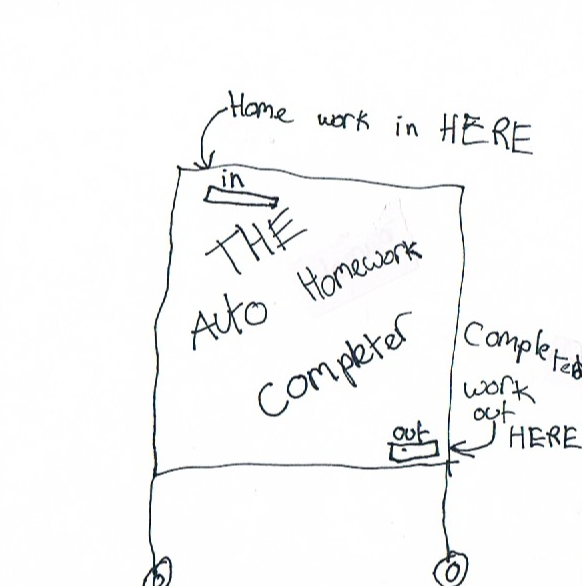 Home work in HERE
in
THE
Auto Homework
Completer
Completed
work
out
HERE
out